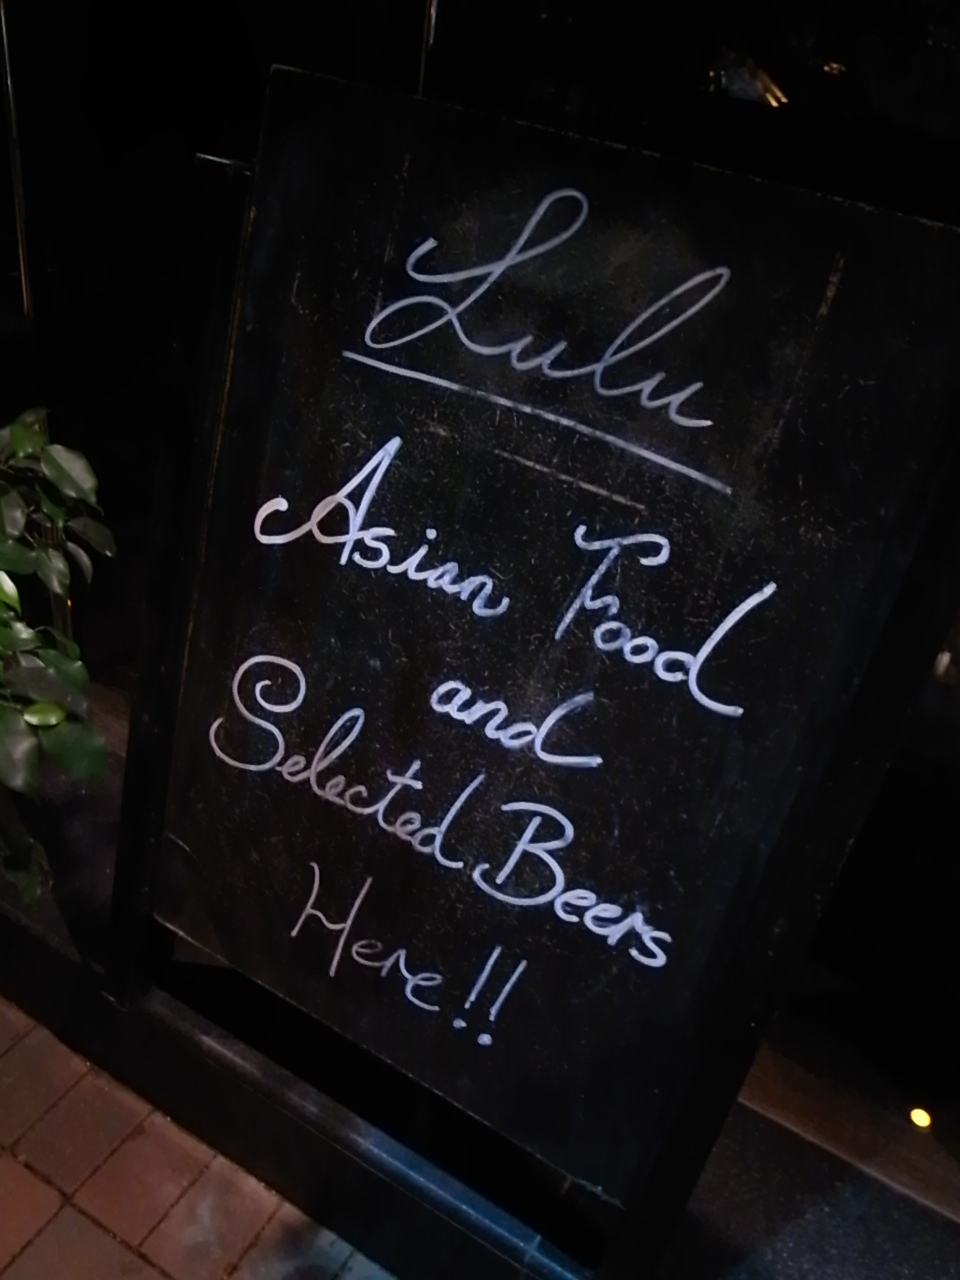 Lulu
Asian Food
and
Selected Beers
Here!!